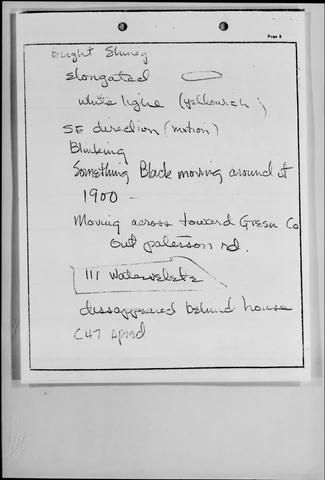 Page 8
Bright Shiney
elongated
white light (yellowish)
SE direction (motion)
Blinking
Something Black moving around it
1900 -
Moving across toward Green Co
out paterson rd.
111
dissappeared behind house
C47 speed